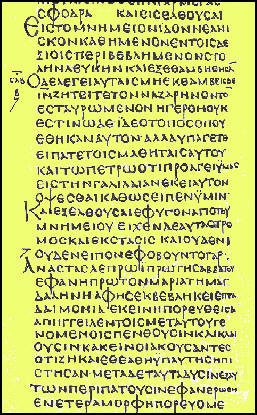 CΦΟΔΡΑ ΚΑΙΕΙCΕΛΘΟΥCΑΙ
ΕΙCΤΟΜΝΗΜΕΙΟΝΙΔΟΝΝΕΑΝΙ
CΚΟΝΚΑΘΗΜΕΝΟΝΕΝΤΟΙCΔΕ
ΞΙΟΙCΠΕΡΙΒΕΒΛΗΜΕΝΟΝCΤΟ
ΛΗΝΛΕΥΚΗΝΚΑΙΕΞΕΘΑΜΒΗΘΗCΑΝ
ΟΔΕΛΕΓΕΙΑΥΤΑΙCΜΗΕΚΘΑΜΒΕΙCΘΕ
ΙΝΖΗΤΕΙΤΕΤΟΝΝΑΖΑΡΗΝΟΝΤΟ
ΕCΤΑΥΡΩΜΕΝΟΝΗΓΕΡΘΗΟΥΚ
ΕCΤΙΝΩΔΕΙΔΕΟΤΟΠΟCΟΠΟΥ
ΕΘΗΚΑΝΑΥΤΟΝ ΑΛΛΑΥΠΑΓΕΤΕ
ΕΙΠΑΤΕΤΟΙCΜΑΘΗΤΑΙCΑΥΤΟΥ
ΚΑΙΤΩΠΕΤΡΩΟΤΙΠΡΟΑΓΕΙΥΜΑC
ΕΙCΤΗΝΓΑΛΙΛΑΙΑΝΕΚΕΙΑΥΤΟΝ
ΟΨΕCΘΑΙΚΑΘΩCΕΙΠΕΝΥΜΙΝ
ΚΑΙΕΞΕΛΘΟΥCΑΙΕΦΥΓΟΝΑΠΟΤΟΥ
ΜΝΗΜΕΙΟΥ ΕΙΧΕΝΔΕΑΥΤΑCΤΡΟ
ΜΟCΚΑΙΕΚCΤΑCΙC ΚΑΙΟΥΔΕΝΙ
ΟΥΔΕΝΕΙΠΟΝΕΦΟΒΟΥΝΤΟΓΑΡ
ΑΝΑCΤΑCΔΕΠΡΩΙΠΡΩΤΗCΑΒΒΑΤΟΥ
ΕΦΑΝΗΠΡΩΤΟΝΜΑΡΙΑΤΗΜΑΓ
ΔΑΛΗΝΗΑΦΗCΕΚΒΕΒΛΗΚΕΙΕΠΤΑ
ΔΑΙΜΟΝΙΑΕΚΕΙΝΗΠΟΡΕΥΘΕΙCΑ
ΑΠΗΓΓΕΙΛΕΝΤΟΙCΜΕΤΑΥΤΟΥΓΕ
ΝΟΜΕΝΟΙCΠΕΝΘΟΥCΙΝΚΑΙΚΛΑΙ
ΟΥCΙΝΚΑΚΕΙΝΟΙΑΚΟΥCΑΝΤΕC
ΟΤΙΖΗΚΑΙΕΘΕΑΘΗΥΠΑΥΤΗCΗΠΙ
CΤΗCΑΝΜΕΤΑΔΕΤΑΥΤΑΔΥCΙΝΕΞΑΥ
ΤΩΝΠΕΡΙΠΑΤΟΥCΙΝΕΦΑΝΕΡΩΘΗ
ΕΝΕΤΕΡΑΜΟΡΦΗΠΟΡΕΥΟΜΕ